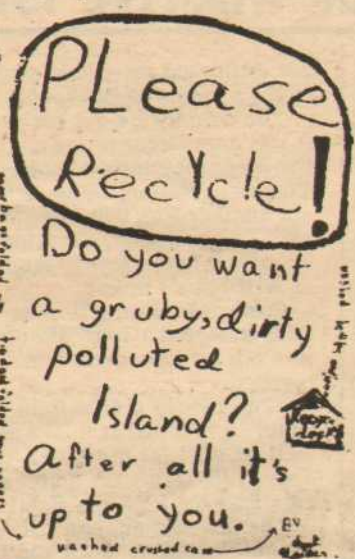 PLease
Recycle!
Do you want
a gruby, dirty
polluted
Island?
After all it's
up to you.
washed crushed can